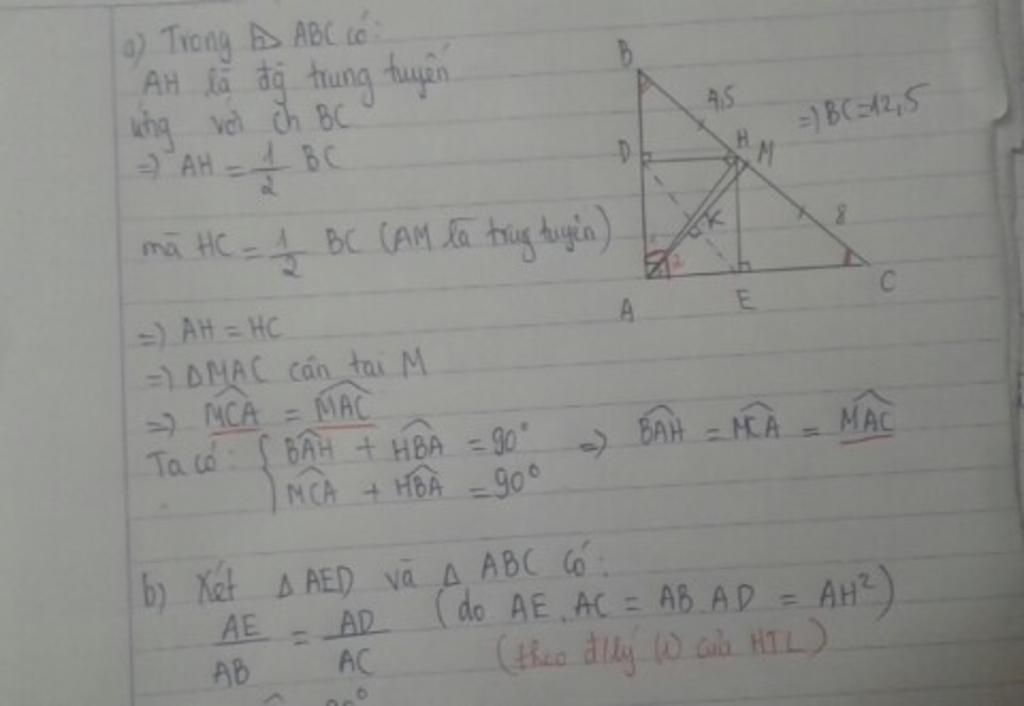 a) Trong ⊿ ABC có:
AH là độ trung tuyến
ứng với ch BC
=) AH = 1/2 BC
mà HC = 1/2 BC (AM là trug tuyến)
=) AH = HC
=) ΔMAC cân tai M
=) MCA = MAC
Ta có: { BAH + HBA = 90° =) BAH = MCA = MAC
MCA + HBA = 90°
B
4,5
=) BC = 12,5
D
H
M
K
8
1
2
A
E
C
b) Xét Δ AED và Δ ABC có:
AE/AB = AD/AC (do AE.AC = AB.AD = AH²)
(theo đ/lý (1) của HTL)